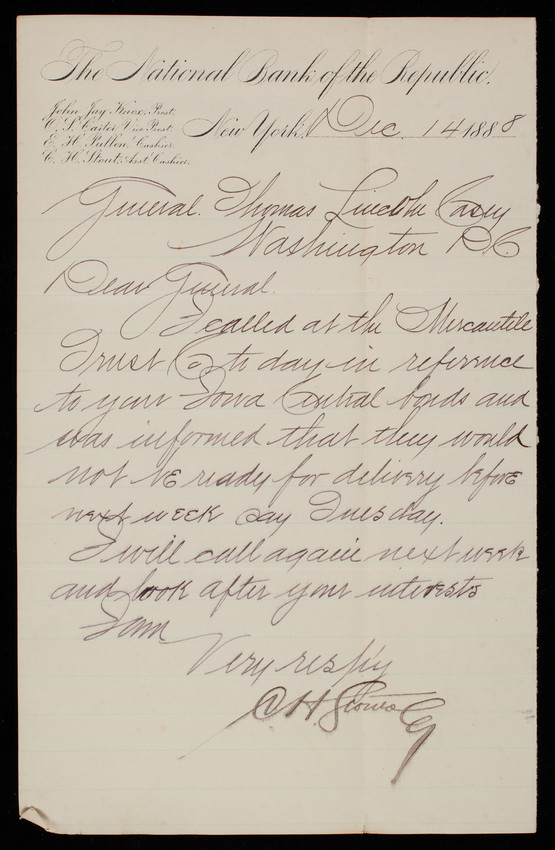 The National Bank of the Republic.
John Jay Knox, Prest.
O. D. Carter, Vice Prest.
E. H. Pullen, Cashier.
C. H. Stout, Asst. Cashier.
New York, Dec. 14 1888
General. Thomas Lincoln Casey
Washington D.C.
Dear General.
I called at the Mercantile
Trust Co to day in reference
to your Iowa Central bonds and
was informed that they would
not be ready for delivery before
next week say Tuesday.
I will call again next week
and look after your interests
I am
Very resp'y
C H Stout